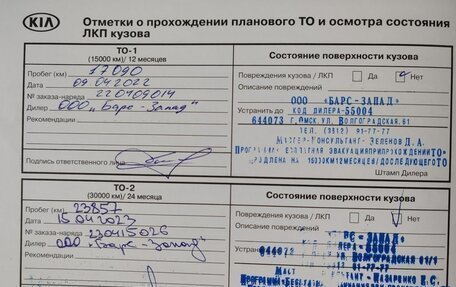 KIA
Отметки о прохождении планового ТО и осмотра состояния
ЛКП кузова
ТО-1
(15000 км)/ 12 месяцев
Состояние поверхности кузова
Пробег (км) 17090
Повреждения кузова / ЛКП Да Нет
Дата 09.04.2022
Описание повреждений
№ заказа-наряда 220409014
ООО «БАРС-ЗАПАД»
Дилер ООО "Барс-Запад"
Устранить до КОД ДИЛЕРА-55004
644073 Г.ОМСК, УЛ. ВОЛГОГРАДСКАЯ, 61
ТЕЛ. (3812) 91-77-77
МАСТЕР-КОНСУЛЬТАНТ- ЗЕЛЕНОВ Д. А.
Подпись ответственного лица
Штамп Дилера
ТО-2
(30000 км)/ 24 месяца
Состояние поверхности кузова
Пробег (км) 23857
Повреждения кузова / ЛКП Да Нет
Дата 15.04.2023
Описание
№ заказа-наряда 230415026
Дилер ООО "Барс-Запад"
Устранить
644073 ВОЛГОГРАДСКАЯ
91-77-77